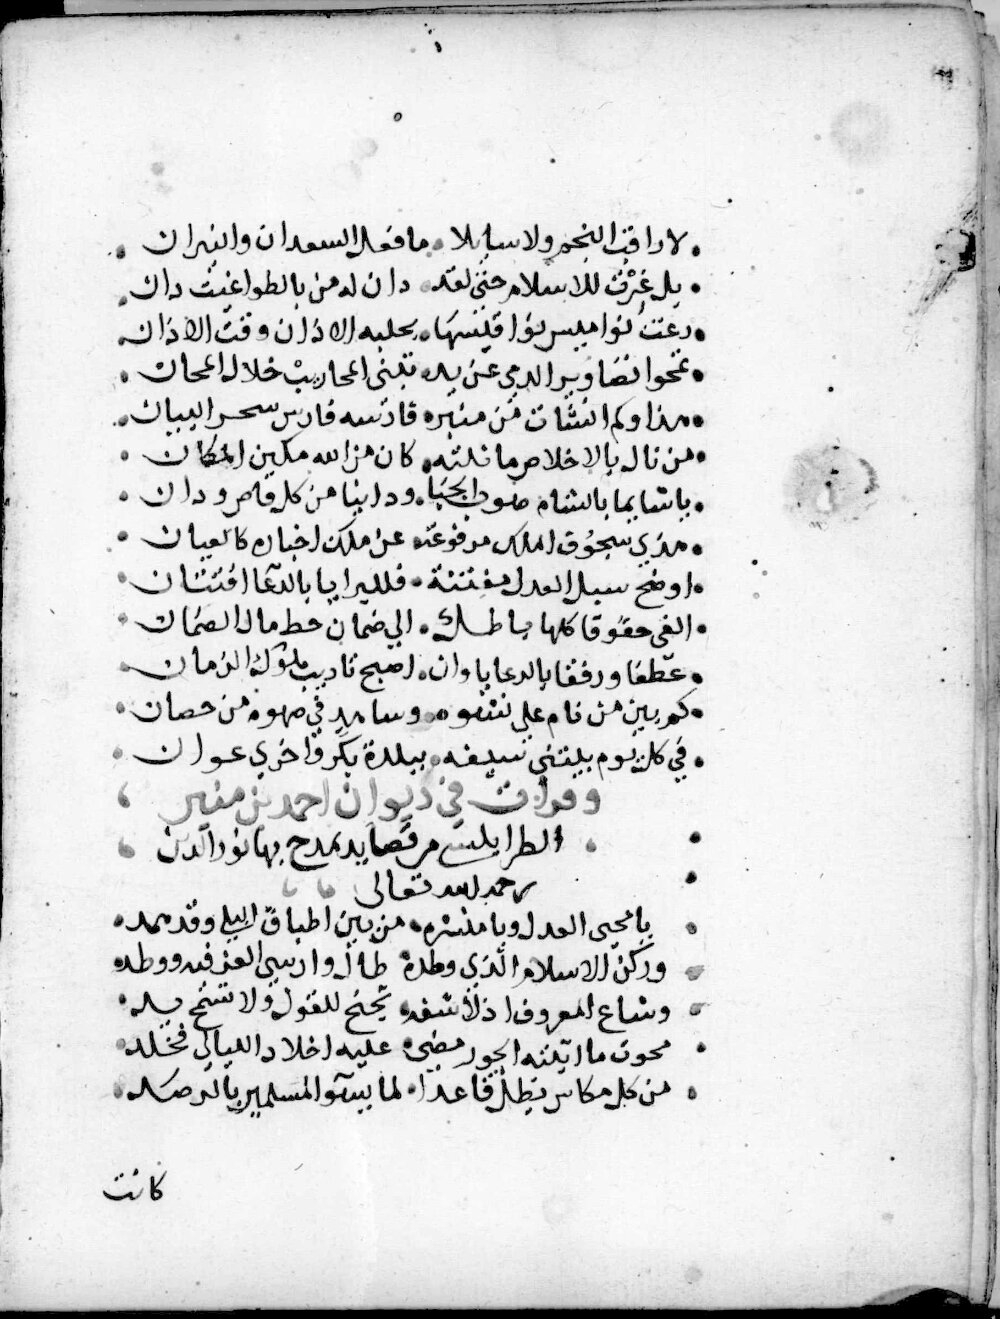 لا راقب النجم ولا سايلا ما فعل السعدان والنيران
بل غرت للاسلام حتى لقد دان له من بالطواغيت دان
رعت نواميس نواقيسها بجلبه الاذان وقت الاذان
تمحوا تصاوير الدمي عن يد تبنى المحاريب خلال المحان
هذا وكم انشات من منبره فارسه فارس سحر البيان
من نال بالاخلاص ما نلته كان من الله مكين المكان
يا شايما بالشام صوب الحيا ودانيا من كل قاص ودان
هذي سجوف الملك مرفوعة عن ملك اخباره كالعيان
اوضح سبل العدل مفتنة فللبرايا بالدعا افتنان
الغى حقوقا كلها باطل الي ضمان حط مال الضمان
عطفا ورفقا بالرعايا وان اصبح تاديب ملوك الزمان
كم بين من نام علي نشوه وساهد في صهوه من حصان
في كل يوم يبتني سيفه ببلدة بكر واخري عوان
وقرات في ديوان احمد بن منير
الطرابلسي من قصايد يمدح بها نور الدين
رحمه الله تعالى
يا محيى العدل ويا منشره من بين اطباق البلي وقد همد
وركن الاسلام الذي وطده طال وارسي العز فيه ووطد
وشاع المعروف اذ لا شفه تجنح للقول ولا تسنح يد
محوت ما اثبته الجور مضى عليه اخلاد الليالي فخلد
من كل مكاس يظل قاعدا لما يسوّ المسلمين بالرصد
كانت